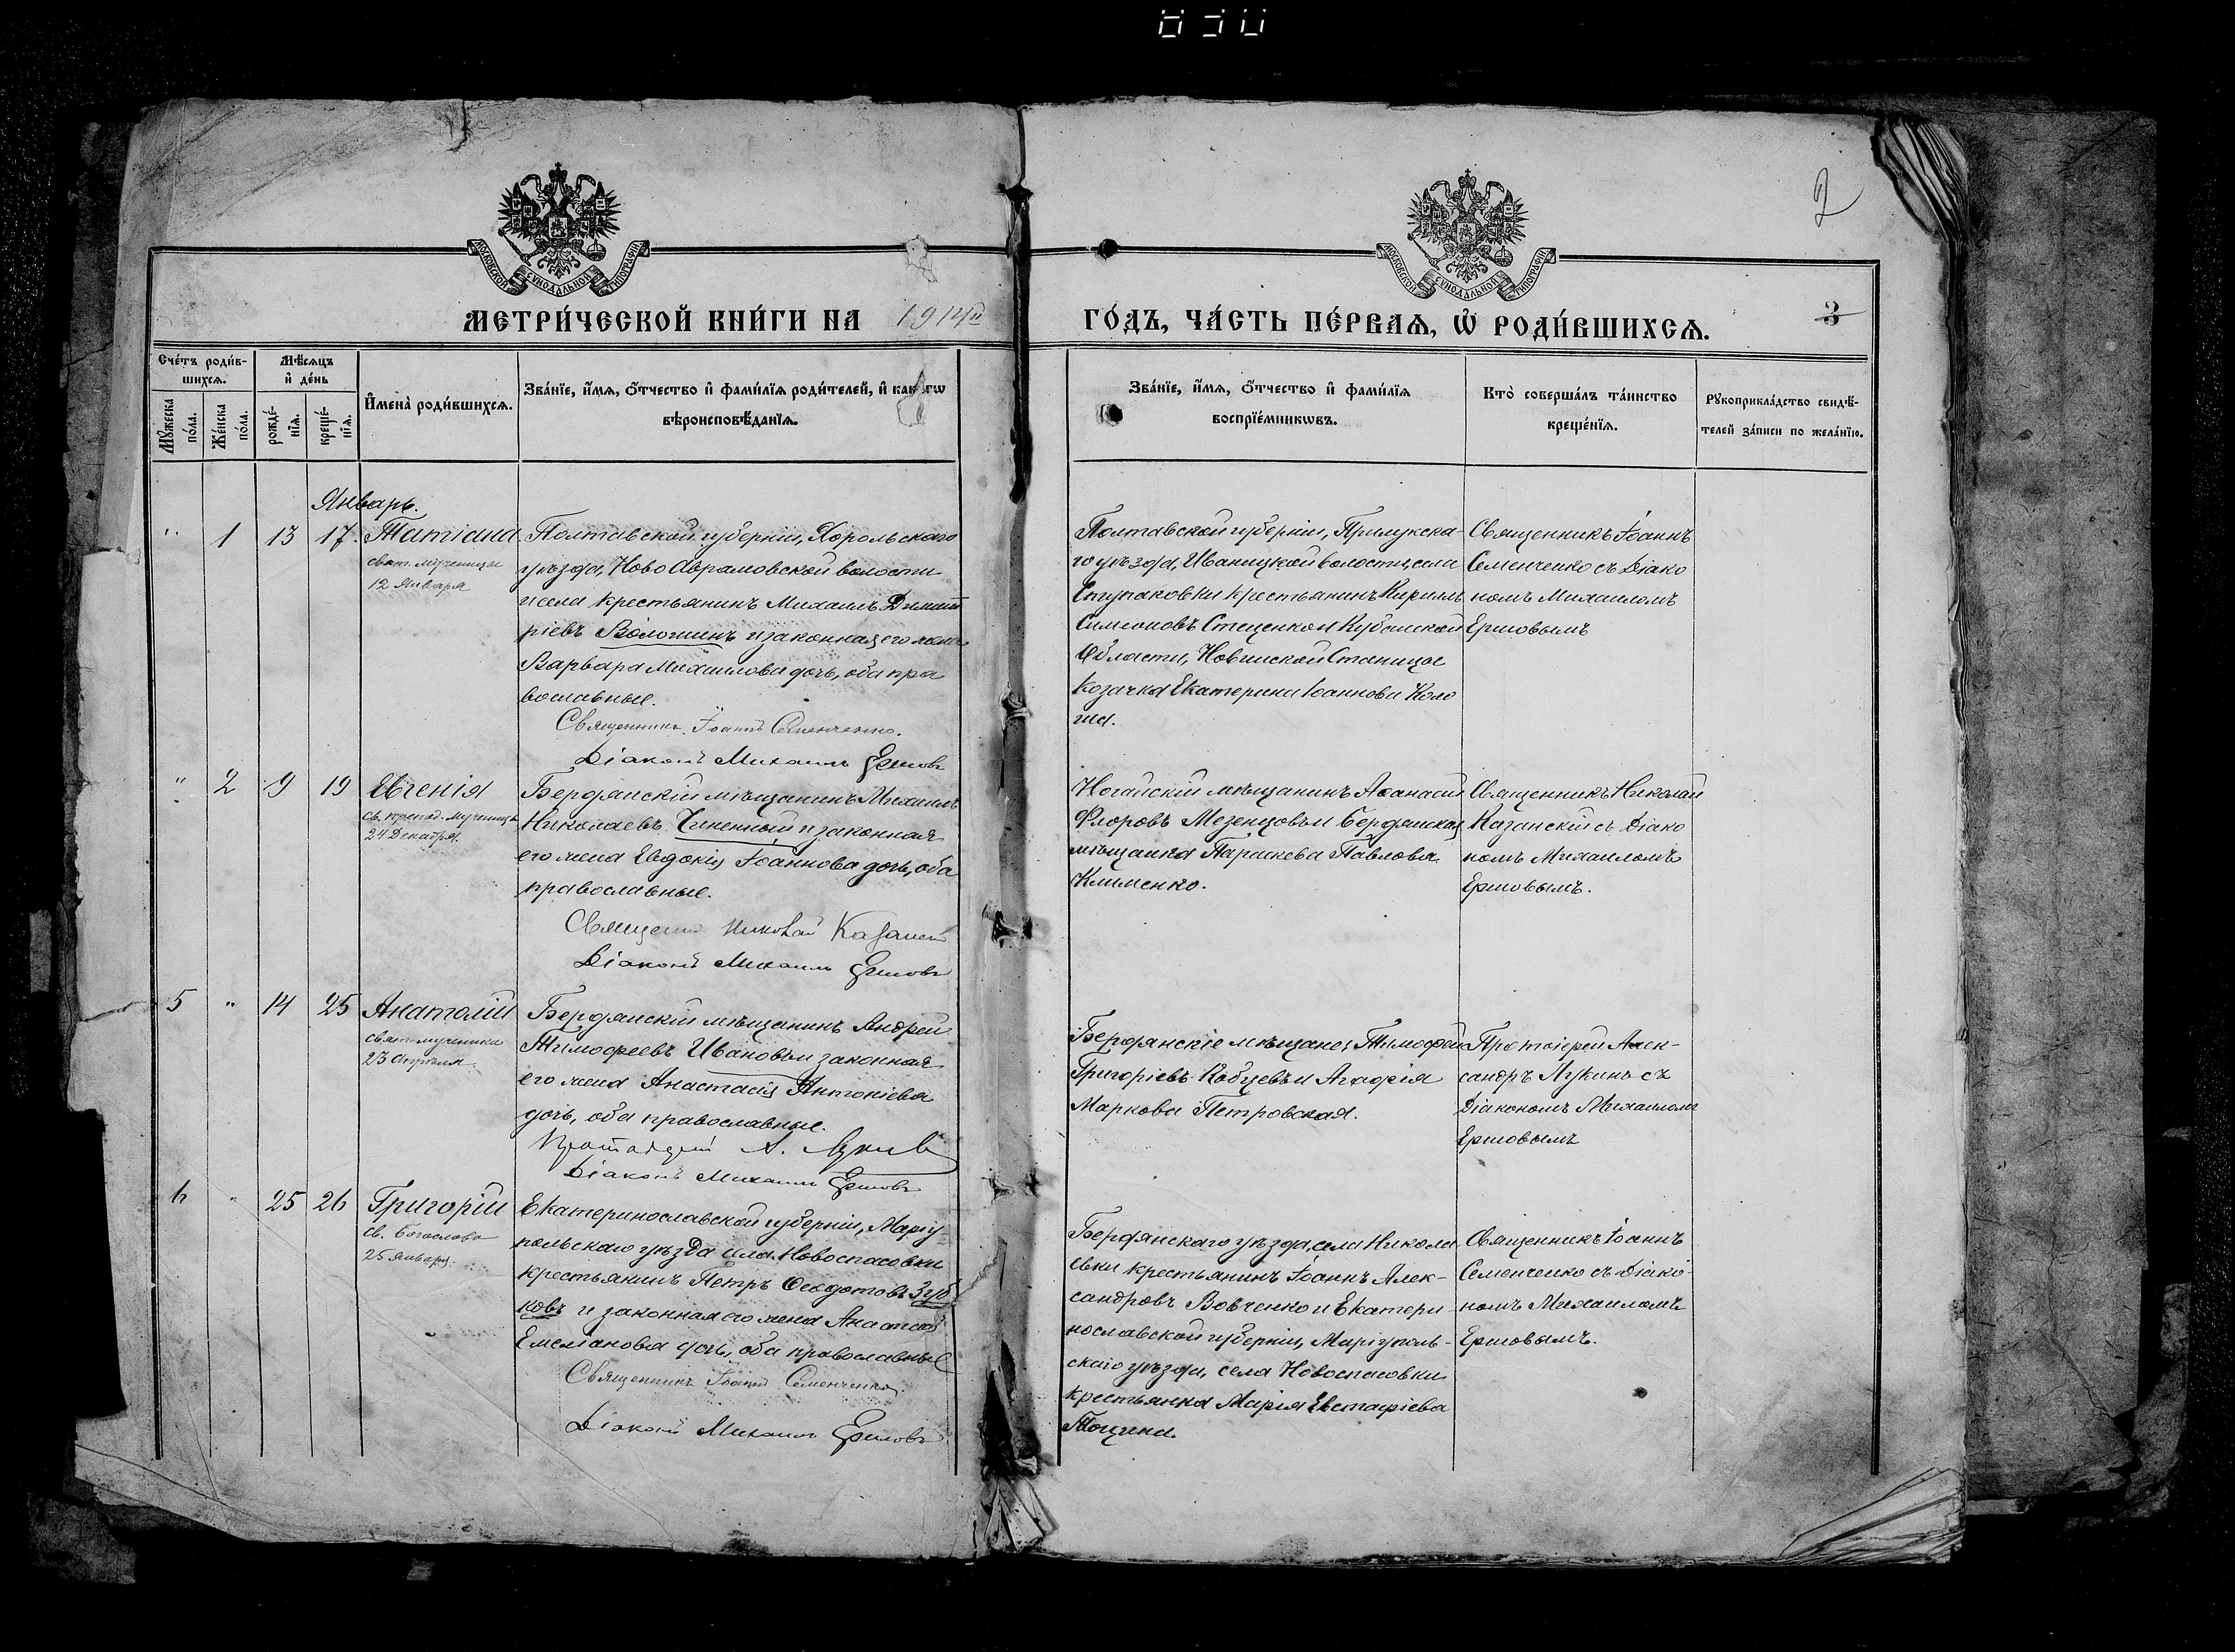 2
МОСКОВСКОЙ СѴНОДАЛЬНОЙ ТИПОГРАФІИ
МОСКОВСКОЙ СѴНОДАЛЬНОЙ ТИПОГРАФІИ
МЕТРИ́ЧЕСКОЙ КНИ́ГИ НА 1914й ГО́ДЪ, ЧА́СТЬ ПЕ́РВАѦ, Ѡ҆ РОДИ́ВШИХСѦ.
3
Сче́тъ роди́в-
шихсѧ.
Мꙋ́жеска
по́ла.
Же́нска
по́ла.
Мѣ́сѧцъ
и҆ де́нь
рожде́-
нїѧ.
креще́-
нїѧ.
И҆мена̀ роди́вшихсѧ.
Зва́нїе, и҆́мѧ, ѻ҆́тчество и҆ фами́лїѧ роди́телей, и҆ како́гѡ
вѣроисповѣ́данїѧ.
Зва́нїе, и҆́мѧ, ѻ҆́тчество и҆ фами́лїѧ
воспрїе́мникѡвъ.
Кто̀ соверша́лъ та́инство
креще́нїѧ.
Рꙋкоприкла́дство свидѣ́-
телей за́писи по жела́нїю.
Январь.
" 1 13 17. Татіана
свят. мученицы
12 Января
Полтавской губерніи, Хорольскаго
уѣзда, Ново Аврамовской волости
и села крестьянинъ Михаилъ Димит
ріевъ Волошинъ и законная его жена
Варвара Михаилова дочь, оба пра
вославные.
Священникъ Іоаннъ Семенченко.
Діаконъ Михаилъ Ершовъ
Полтавской губерніи, Прилукска-
го уѣзда, Иваницкой волости, села
крестьянинъ Кириллъ
Симеоновъ Стеценко и Кубанской
Области, Станицы
Козачка Екатерина Іоаннова
Священникъ Іоаннъ
Семенченко съ Діако
номъ Михаиломъ
Ершовымъ
" 2 9 19 Евгенія
св. препод. мученицы
24 Декабря.
Бердянскій мѣщанинъ Михаилъ
Николаевъ и законная
его жена Евдокія Іоаннова дочь, оба
православные.
Священникъ Николай Казанскій
Діаконъ Михаилъ Ершовъ
Ногайскій мѣщанинъ Афанасій
Флоровъ Мезенцовъ и Бердянская
мѣщанка Параскева Павлова
Клименко.
Священникъ Николай
Казанскій съ Діако
номъ Михаиломъ
Ершовымъ.
5 " 14 25 Анатолій
свят. мученика
23 Апрѣля.
Бердянскій мѣщанинъ Андрей
Тимофеевъ Ивановъ и законная
его жена Анастасія Антоніева
дочь, оба православные.
Протоіерей А. Лукинъ
Діаконъ Михаилъ Ершовъ
Бердянскіе мѣщане, Тимофей
Григоріевъ Кобцевъ и Агафія
Маркова Петровская.
Протоіерей Алек-
сандръ Лукинъ съ
Діакономъ Михаиломъ
Ершовымъ
6 " 25 26 Григорій
св. Богослова
25 Января.
Екатеринославской губерніи, Маріу
польскаго уѣзда села Новоспасовки
крестьянинъ Петръ Феодотовъ Зуб
ковъ и законная его жена Анастасія
Емеліанова дочь, оба православные
Священникъ Іоаннъ Семенченко.
Діаконъ Михаилъ Ершовъ
Бердянскаго уѣзда, села Никола
евки крестьянинъ Іоаннъ Алек-
сандровъ Вовченко и Екатери-
нославской губерніи, Маріуполь-
скаго уѣзда, села Новоспасовки
крестьянка Марія Евстафіева
Священникъ Іоаннъ
Семенченко съ Діако-
номъ Михаиломъ
Ершовымъ.